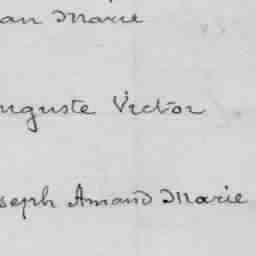 an Marie
uguste Victor
seph Amand Marie